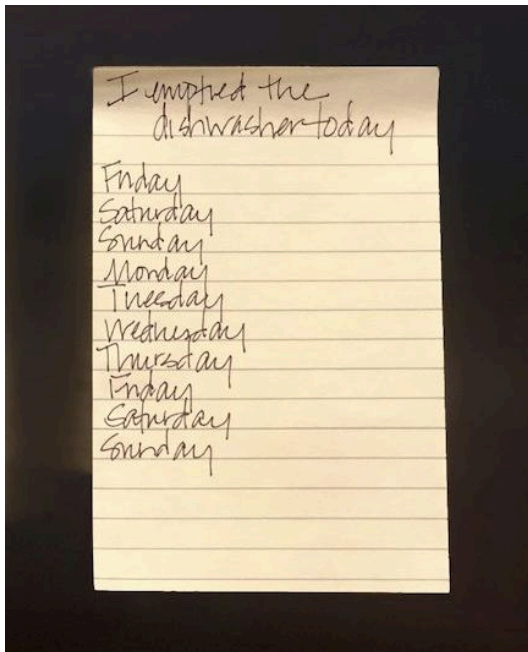 I emptied the
dishwasher today
Friday
Saturday
Sunday
Monday
Tuesday
Wednesday
Thursday
Friday
Saturday
Sunday